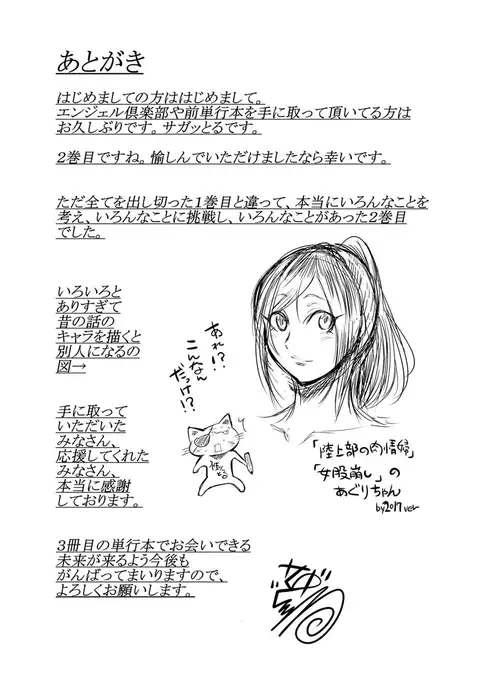 あとがき
はじめましての方ははじめまして。
エンジェル倶楽部や前単行本を手に取って頂いてる方は
お久しぶりです。サガッとるです。
2巻目ですね。愉しんでいただけましたなら幸いです。
ただ全てを出し切った1巻目と違って、本当にいろんなことを
考え、いろんなことに挑戦し、いろんなことがあった2巻目
でした。
いろいろと
ありすぎて
昔の話の
キャラを描くと
別人になるの
図→
あれ!?
こんなん
だっけ!?
「陸上部の肉情婦」
「女股崩し」の
あぐりちゃん
by2017ver
手に取って
いただいた
みなさん、
応援してくれた
みなさん、
本当に感謝
しております。
3冊目の単行本でお会いできる
未来が来るよう今後も
がんばってまいりますので、
よろしくお願いします。